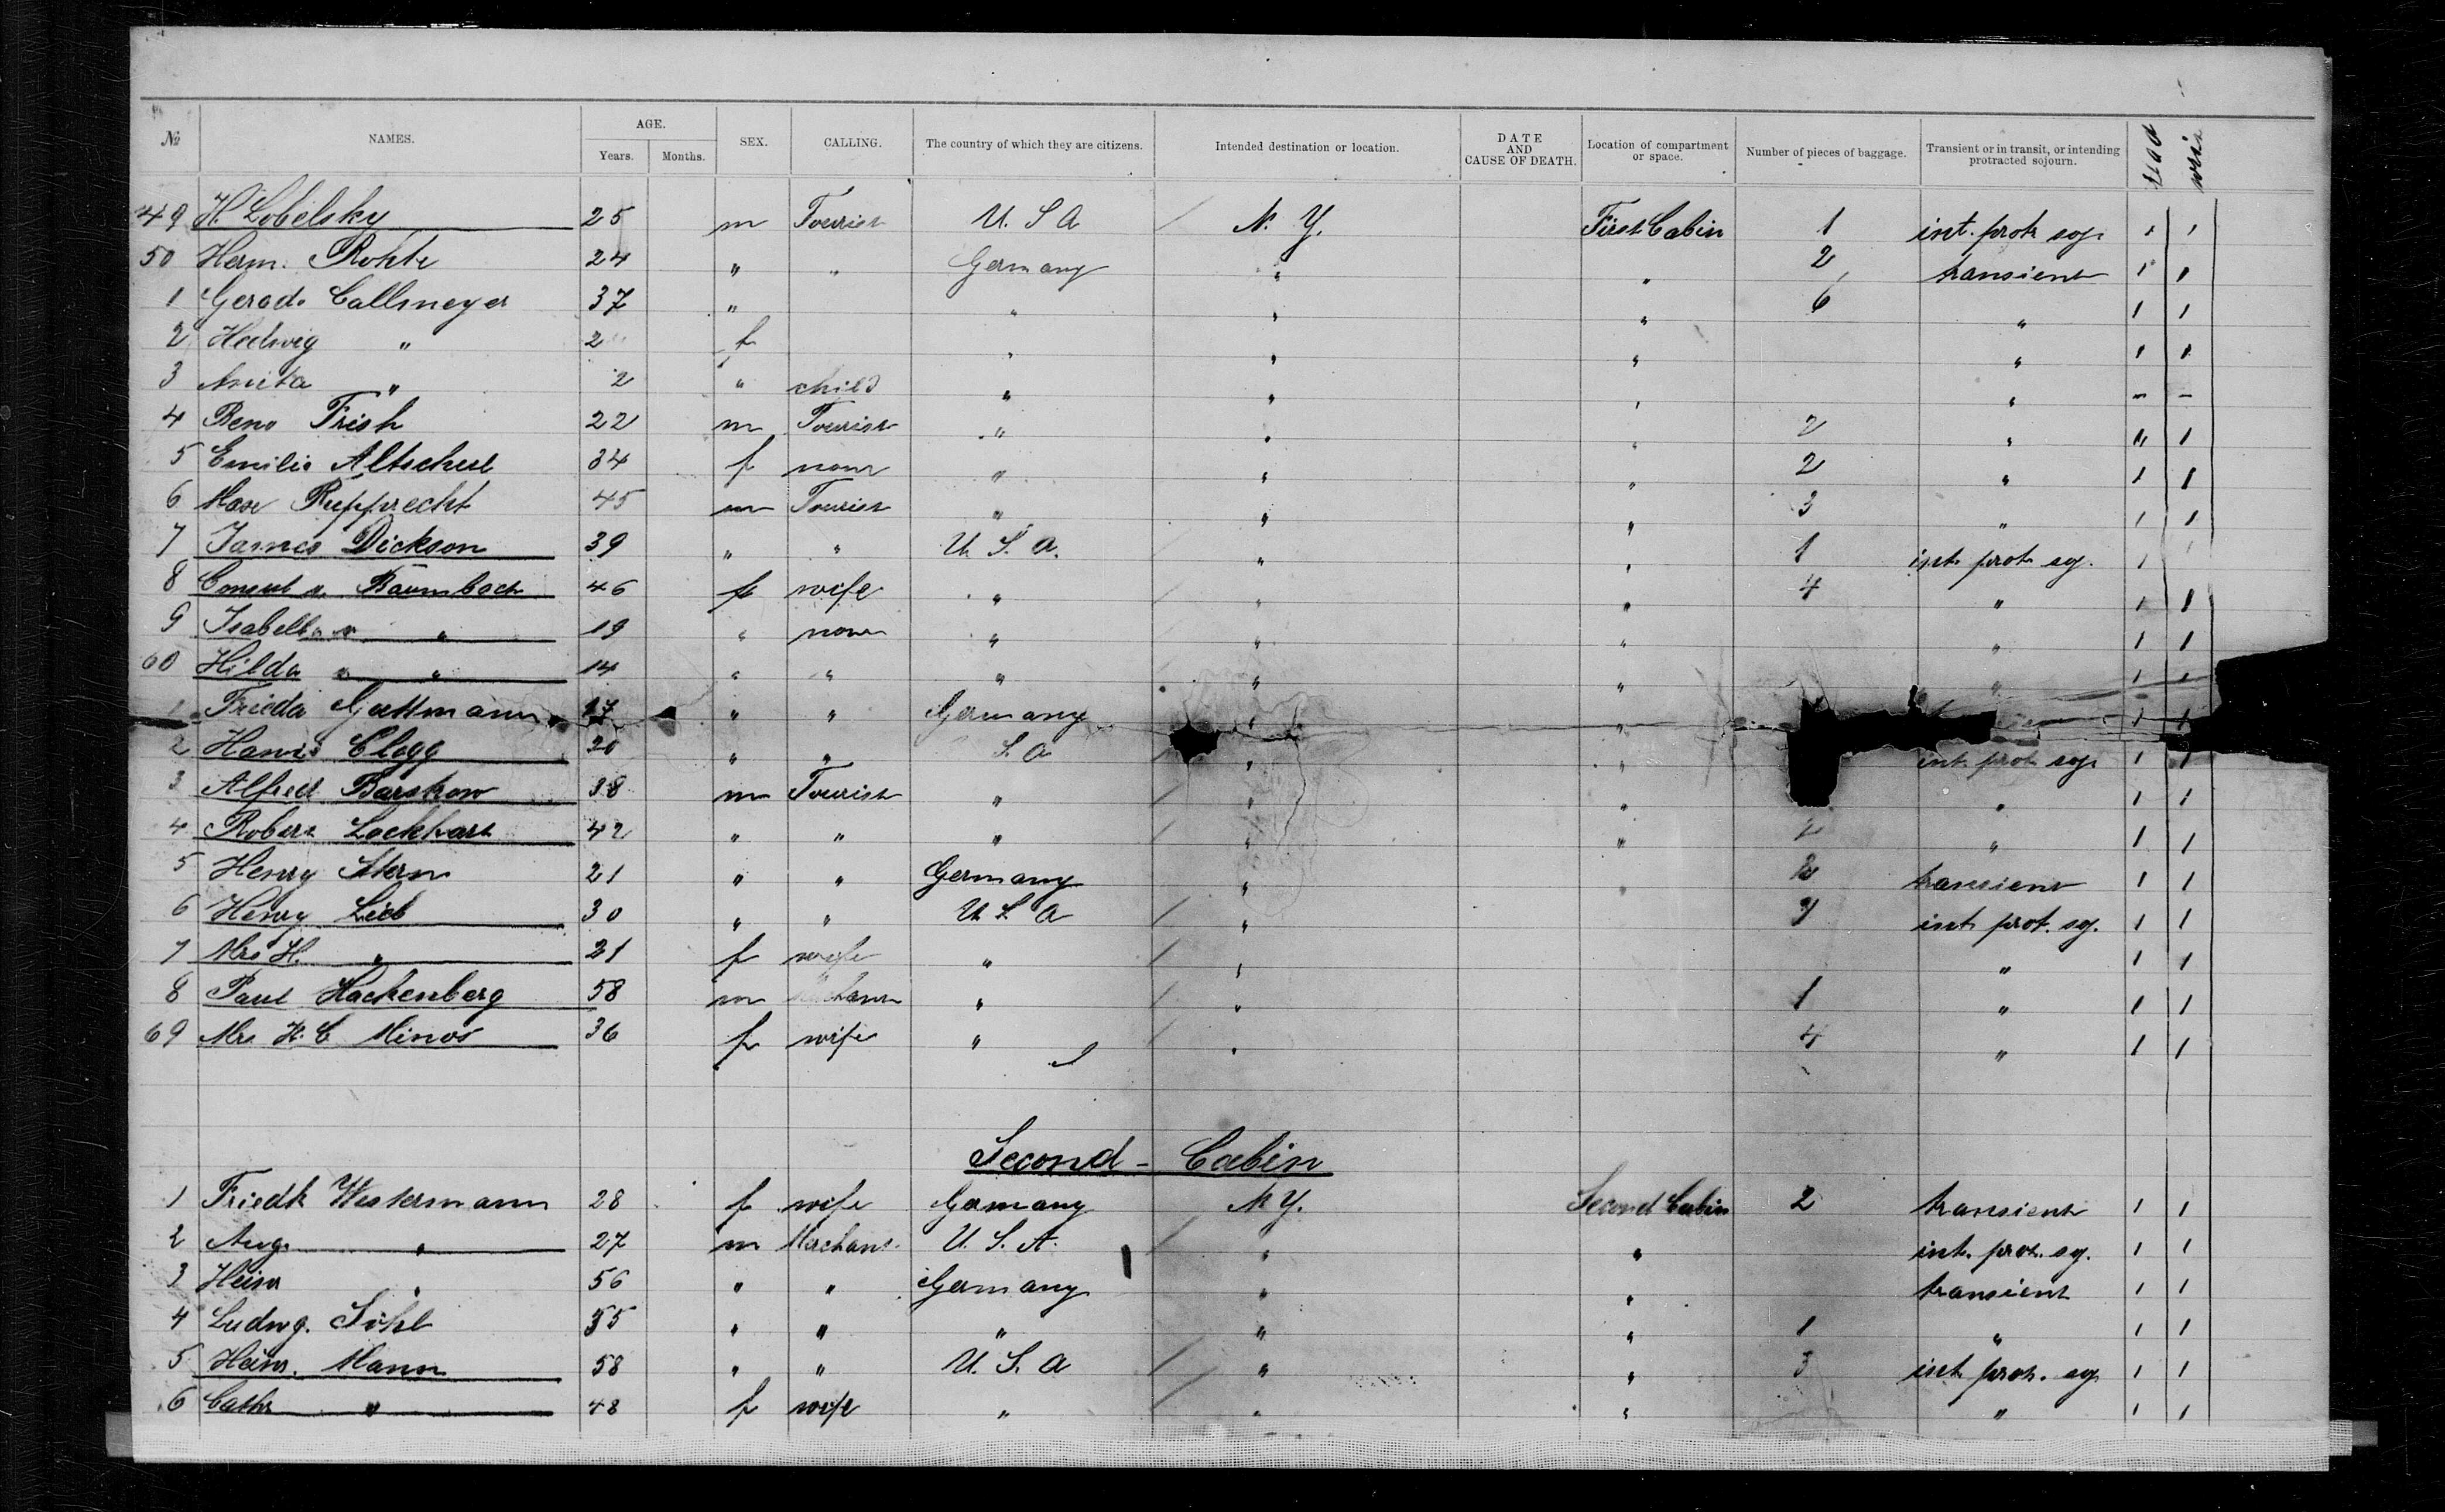 № NAMES. AGE. Years. Months. SEX. CALLING. The country of which they are citizens. Intended destination or location. DATE AND CAUSE OF DEATH. Location of compartment or space. Number of pieces of baggage. Transient or in transit, or intending protracted sojourn. read
49 H. Lobelsky 25 m Tourist U. S A N. Y. First Cabin 1 int. prot. soj. 1 1
50 Herm. Rohte 24 " " Germany " " 2 transient 1 1
1 Gerad. Callmeyer 37 " " " " 6 " 1 1
2 Hedwig " 2 f " " " " 1 1
3 Anita " 2 " child " " " " - -
4 Beno Frish 22 m Tourist " " " 2 " " 1
5 Emilie Altschul 34 f none " " " 2 " 1 1
6 Max Rupprecht 45 m Tourist " " " 3 " 1 1
7 James Dickson 39 " " U. S. A. " " 1 int. prot. soj. 1 1
8 Consul v. Baumbach 46 f wife " " " 4 " 1 1
9 Isabella v. " 19 " none " " " " 1 1
60 Hilda " " 14 " " " " " " 1 1
1 Frieda Guttmann 17 " " Germany " " 1 1
2 Clegg 20 " " S. A " " int. prot. soj. 1 1
3 Alfred Barstow 38 m Tourist " " " " 1 1
4 Robert Lockhart 42 " " " " " 2 " 1 1
5 Henry Stern 21 " " Germany " " 2 transient 1 1
6 Henry Lieb 30 " " U. S. A " int. prot. soj. 1 1
7 Mrs H. " 21 f wife " " " 1 1
8 Paul Hackenberg 58 m " " 1 " 1 1
69 Mrs H. C Minor 36 f wife " " 4 " 1 1
Second - Cabin
1 Friedk Westermann 28 f wife Germany N. Y. Second Cabin 2 transient 1 1
2 Aug. " 27 m Merchant U. S. A. " " int. prot. soj. 1 1
3 Heinr " 56 " " Germany " " transient 1 1
4 Ludwg. Söhl 55 " " " " " 1 " 1 1
5 Heinr. Mann 58 " " U. S. A " " 3 int. prot. soj. 1 1
6 Cathr " 48 f wife " " " " 1 1